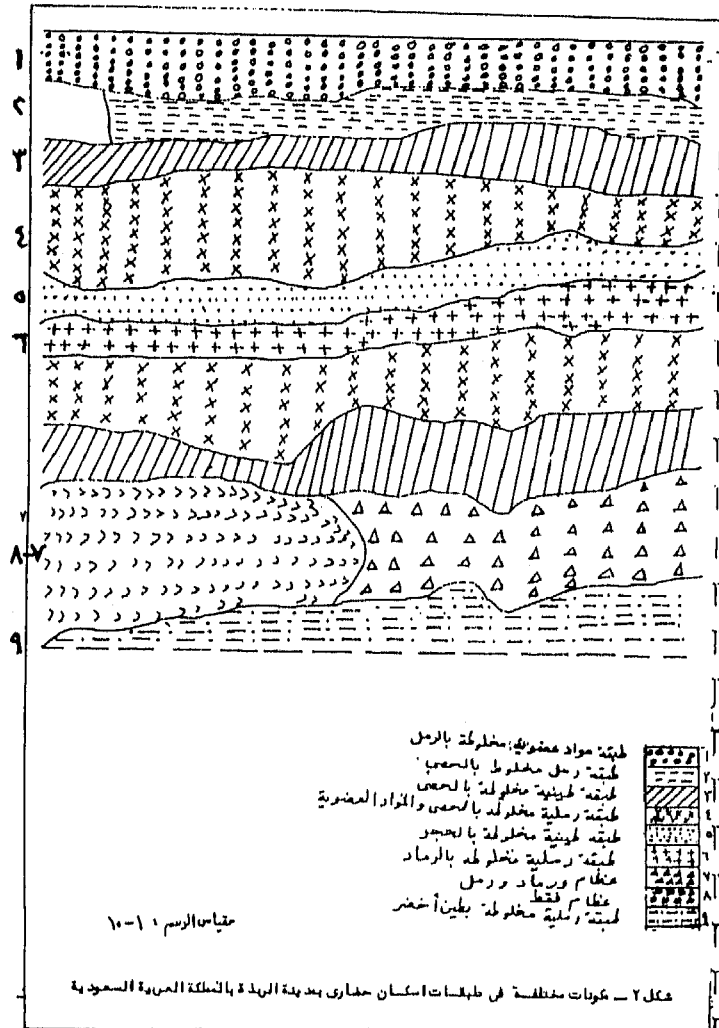 ١
٢
٣
٤
٥
٦
٧-٨
٩
طبقة مواد عضوية مخلوطة بالرمل
طبقة رمل مخلوط بالحصى
طبقة طينية مخلوطة بالحصى
طبقة رملية مخلوطة بالحصى والمواد العضوية
طبقة طينية مخلوطة بالحجر
طبقة رملية مخلوطة بالرماد
عظام ورماد ورمل
عظام فقط
طبقة رملية مخلوطة بطين أخضر
١
٢
٣
٤
٥
٦
٧
٨
٩
مقياس الرسم : ١-١٠
شكل ٢ ــ مكونات مختلفة في طبقات اسكان حضارى بمدينة الربذة بالمملكة العربية السعودية